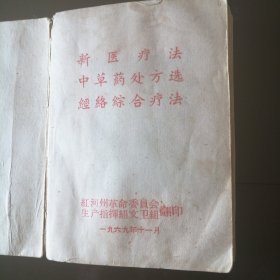 新医疗法
中草药处方选
經絡綜合疗法
紅河州革命委員会
生产指揮組文卫組翻印
一九六九年十一月